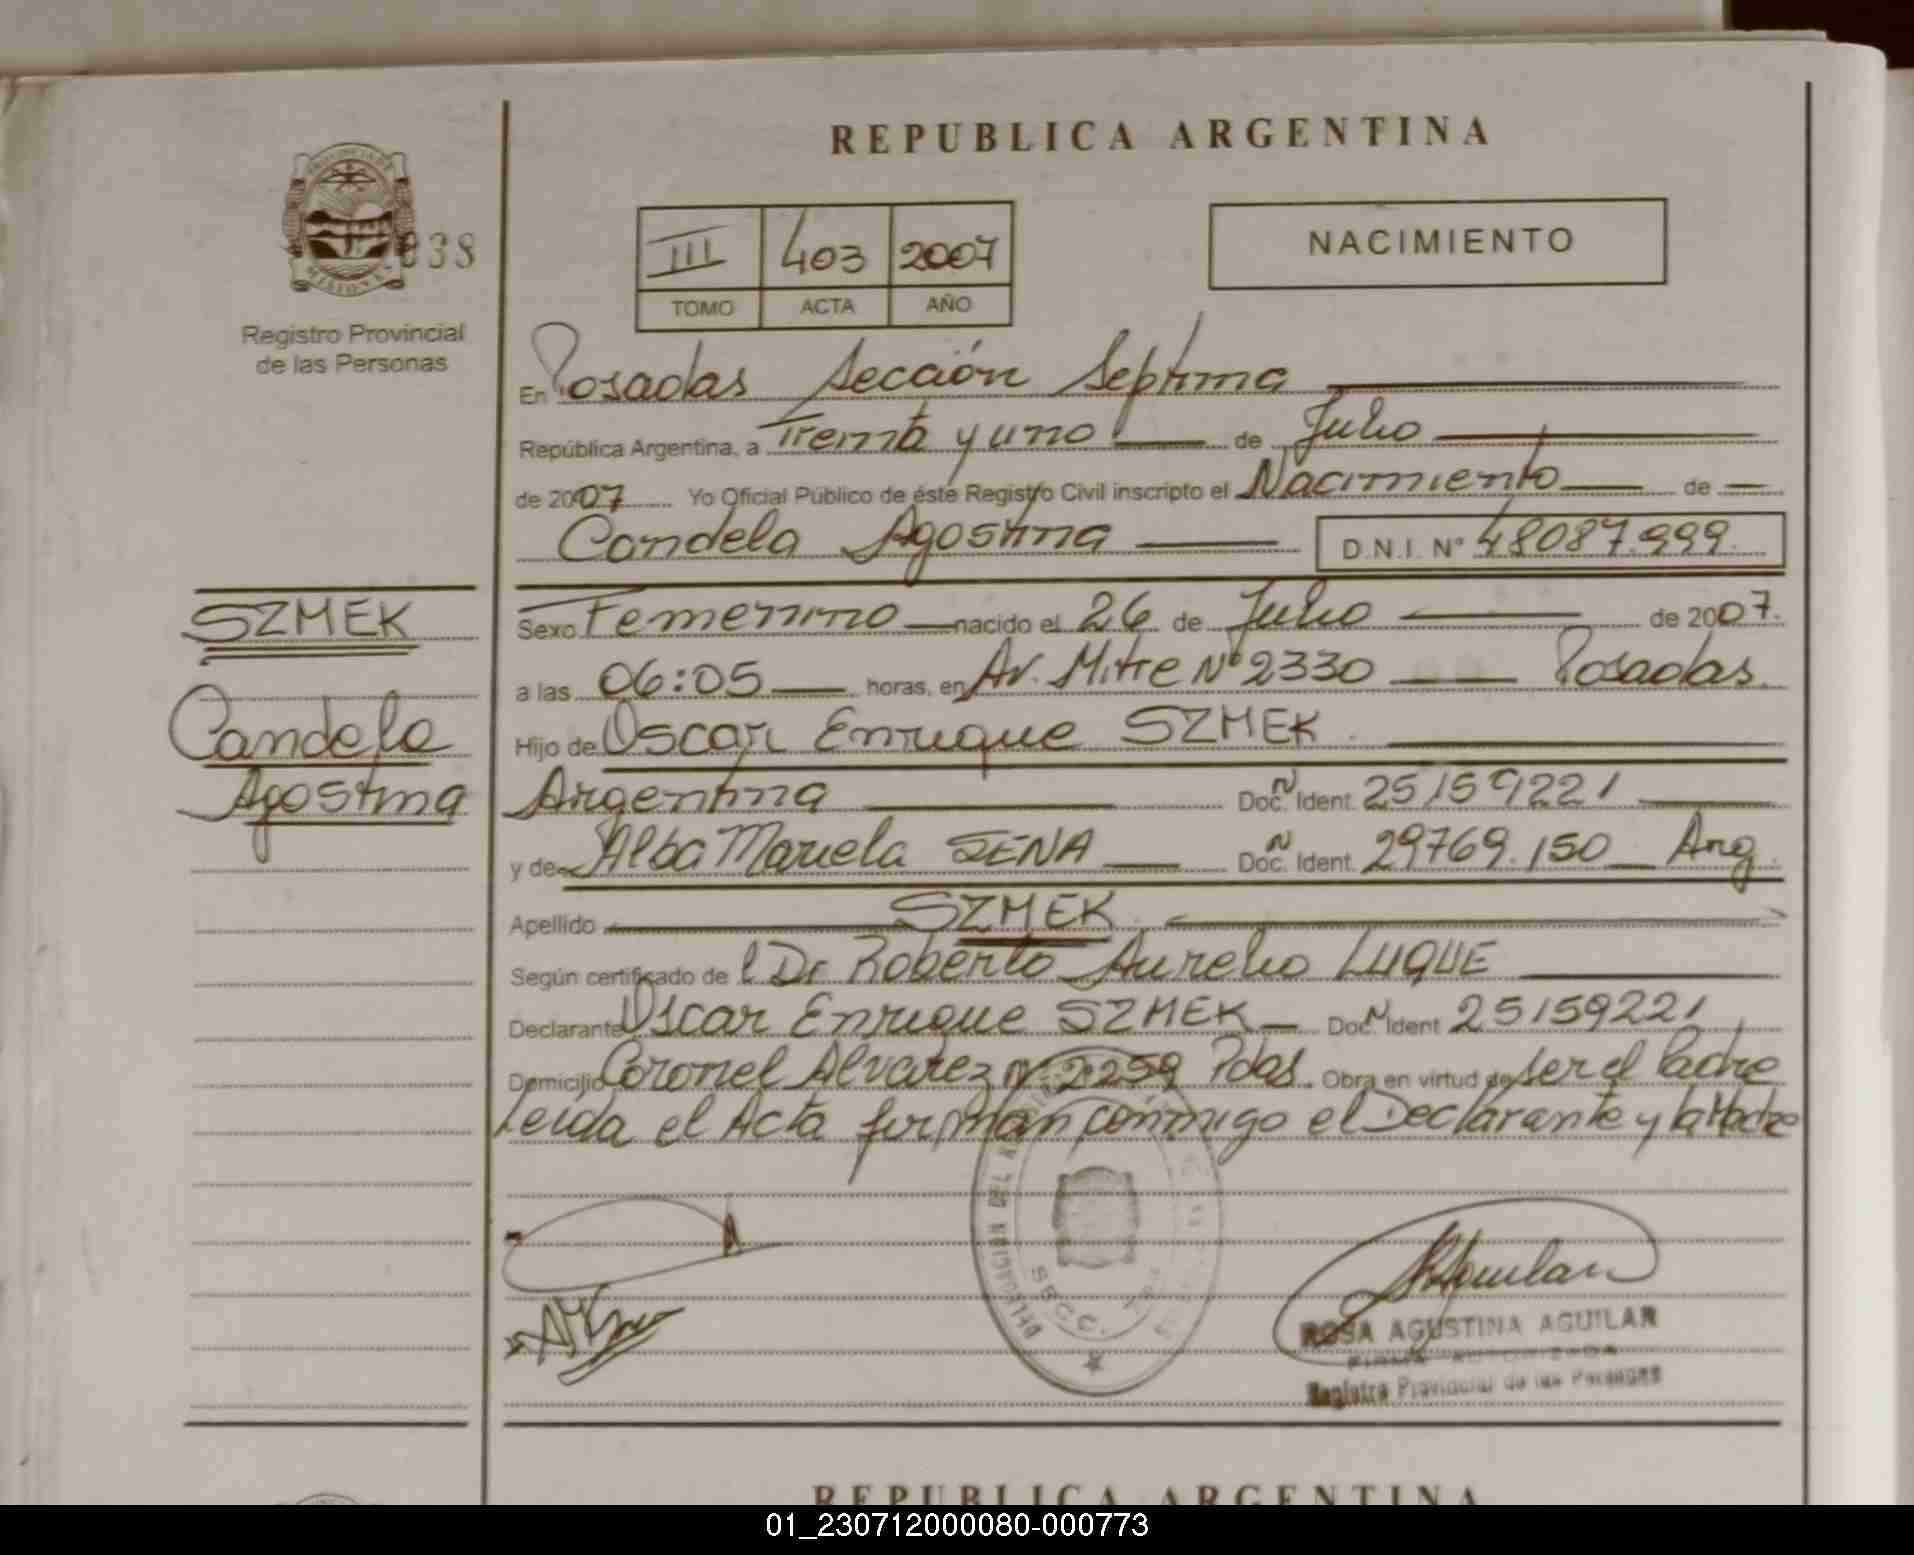 REPUBLICA ARGENTINA
PROVINCIA DE
MISIONES
038
Registro Provincial
de las Personas
III 403 2007
TOMO ACTA AÑO
NACIMIENTO
En Posadas Sección Septima
República Argentina, a Treinta y uno de Julio
de 2007 Yo Oficial Público de éste Registro Civil inscripto el Nacimiento de
Candela Agostina D.N.I. Nº 48087.999
SZMEK
Candela
Agostina
Sexo Femenino nacido el 26 de Julio de 2007.
a las 06:05 horas, en Av. Mitre Nº 2330 Posadas.
Hijo de Oscar Enrique SZMEK
Argentina Doc. N Ident. 25159221
y de Alba Mariela SENA Doc. N Ident. 29769.150 Arg.
Apellido SZMEK
Según certificado de l Dr Roberto Aurelio LUQUE
Declarante Oscar Enrique SZMEK Doc. N Ident 25159221
Domicilio Coronel Alvarez Nº 2259 Pdas. Obra en virtud de ser el Padre
Leida el Acta firman conmigo el Declarante y la Madre
DELEGACION DEL
SECC.
RAguilar
ROSA AGUSTINA AGUILAR
FIRMA AUTORIZADA
Registro Provincial de las Personas
REPUBLICA ARGENTINA
01_230712000080-000773